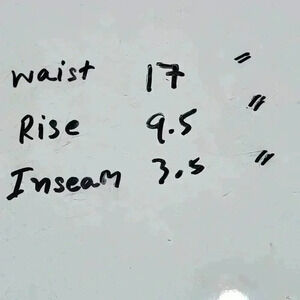 Waist 17 "
Rise 9.5 "
Inseam 3.5 "